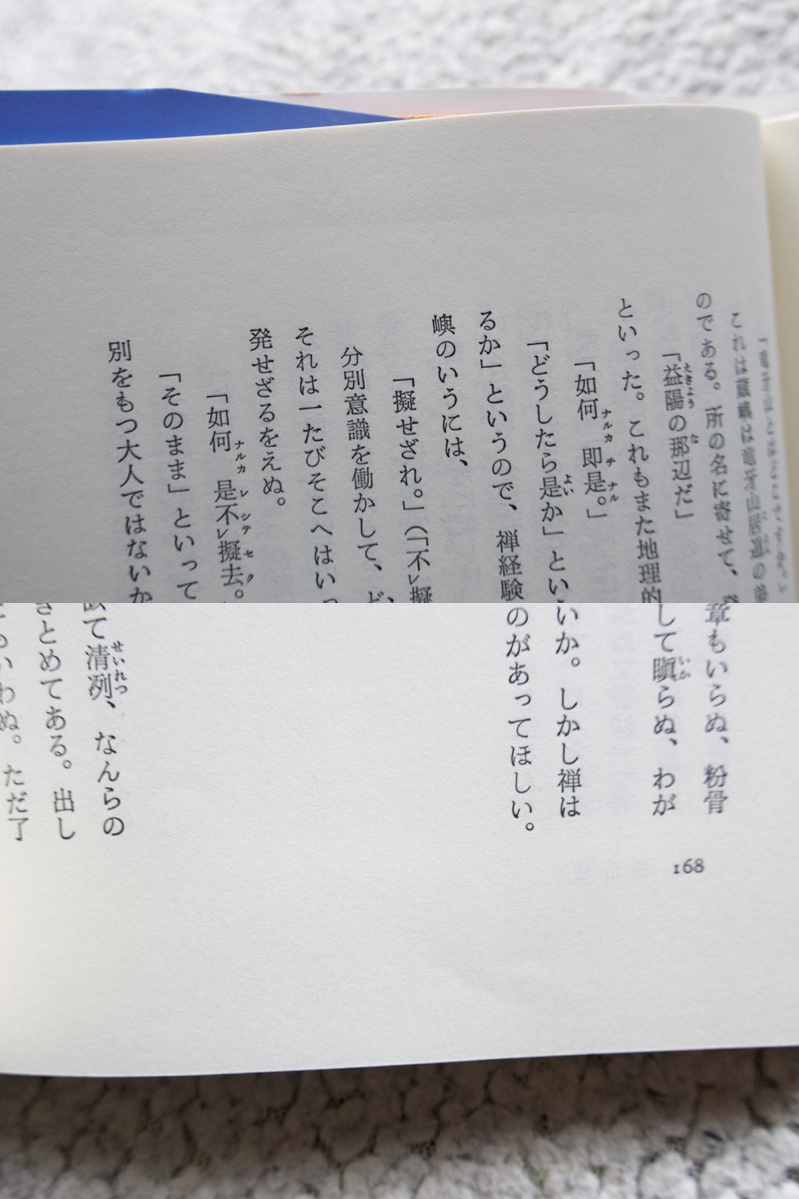 「竜牙山と
これは蔵嶼は竜牙山居遁の弟
のである。所の名に寄せて、
「益陽の那辺だ」
といった。これもまた地理的
「如何ナルカ即チ是ナル。」
「どうしたら是か」とい
るか」というので、禅経験
嶼のいうには、
「擬せざれ。」（「不レ擬
分別意識を働かして、ど
それは一たびそこへはいっ
発せざるをえぬ。
「如何ナルカ是レ不シテレ擬セ去ク。
「そのまま」といって
別をもつ大人ではないか
章もいらぬ、粉骨
して瞋らぬ、わが
いか。しかし禅は
のがあってほしい。
て清冽、なんらの
とめてある。出し
いわぬ。ただ了
168